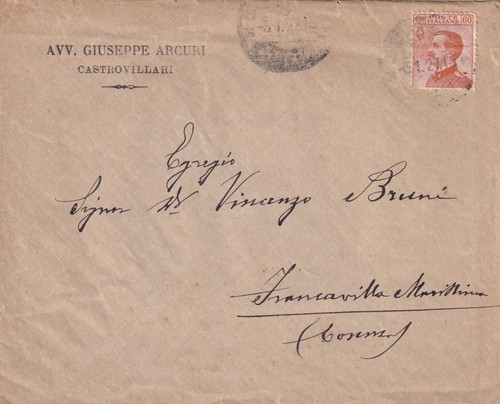 AVV. GIUSEPPE ARCURI
CASTROVILLARI
60
Egregio
Signor Dr Vincenzo Bruni
Francavilla Marittima
(Cosenza)